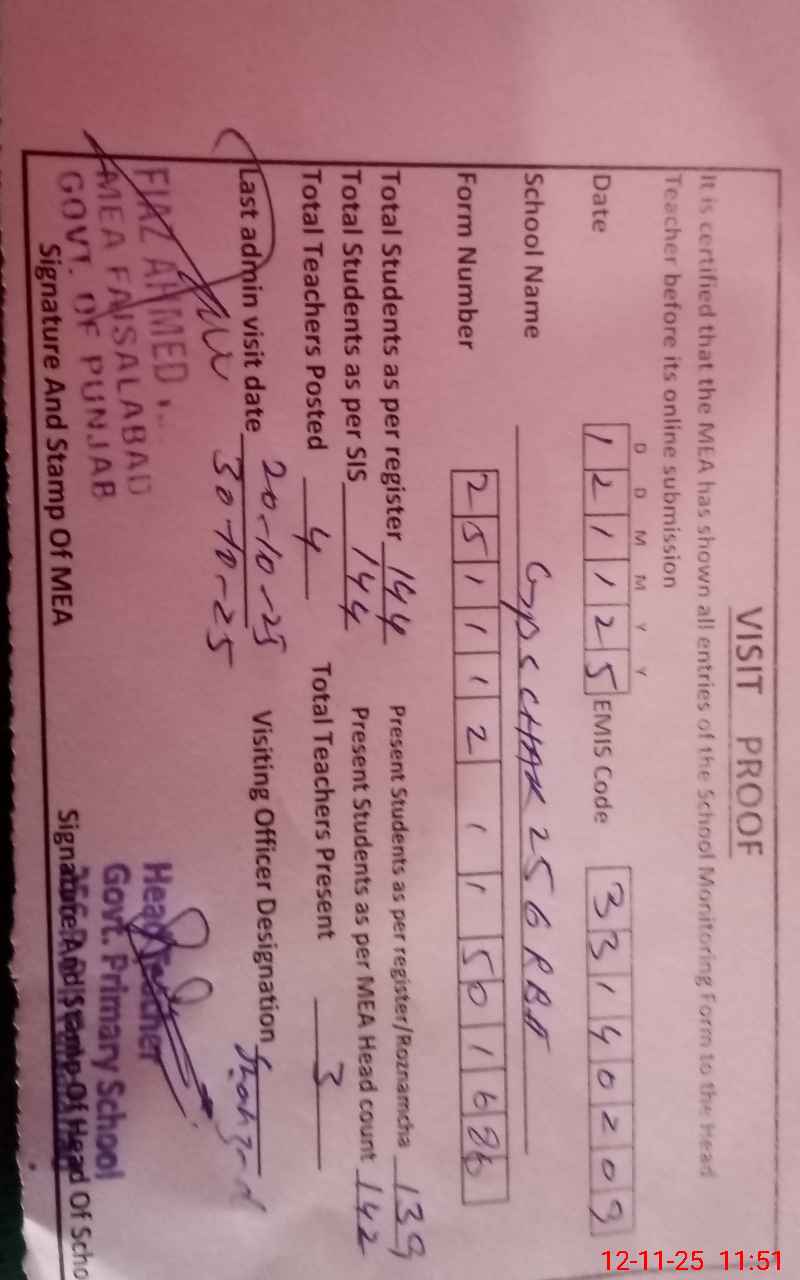 VISIT PROOF
It is certified that the MEA has shown all entries of the School Monitoring Form to the Head
Teacher before its online submission
D D M M Y Y
Date 1 2 1 1 2 5 EMIS Code 3 3 1 4 0 2 0 9
School Name GPS CHAK 256 RB
Form Number 2 5 1 1 1 2 1 1 5 0 1 6
Total Students as per register 144 Present Students as per register/Roznamcha 139
Total Students as per SIS 144 Present Students as per MEA Head count 142
Total Teachers Posted 4 Total Teachers Present 3
Last admin visit date 20-10-25 Visiting Officer Designation
30-10-25
FIAZ AHMED
MEA FAISALABAD
GOVT. OF PUNJAB
Signature And Stamp Of MEA
Head Teacher
Govt. Primary School
Signature And Stamp Of Head Of Scho
12-11-25 11:51